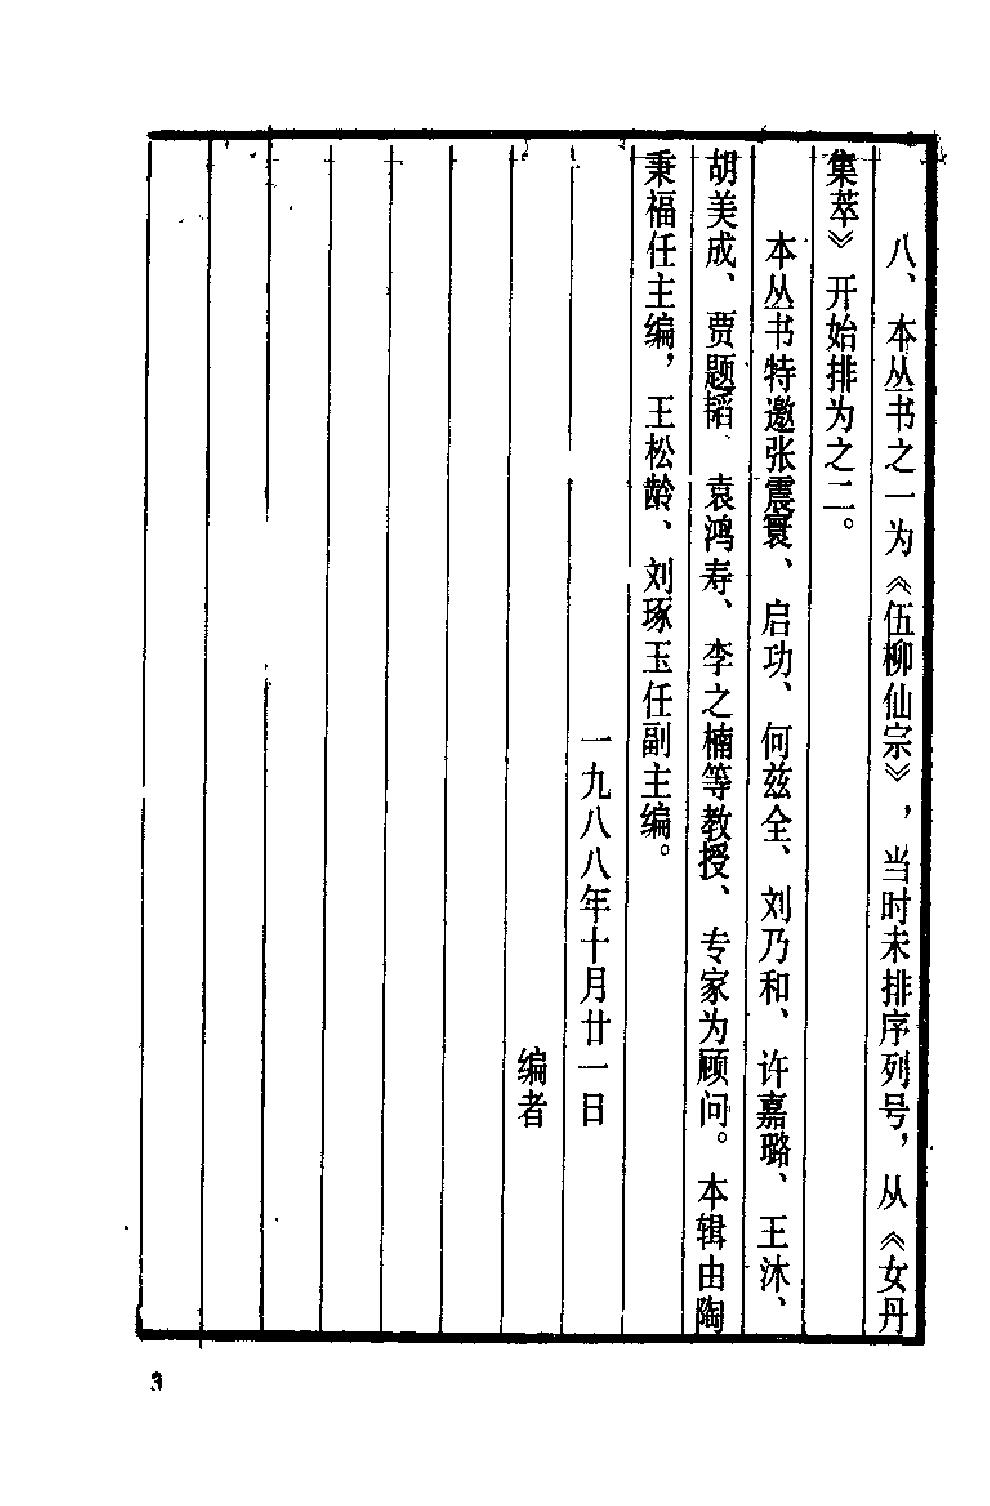 八、本丛书之一为《伍柳仙宗》，当时未排序列号，从《女丹
集萃》开始排为之二。
本丛书特邀张震寰、启功、何兹全、刘乃和、许嘉璐、王沐、
胡美成、贾题韬、袁鸿寿、李之楠等教授、专家为顾问。本辑由陶
秉福任主编，王松龄、刘琢玉任副主编。
一九八八年十月廿一日
编者
3